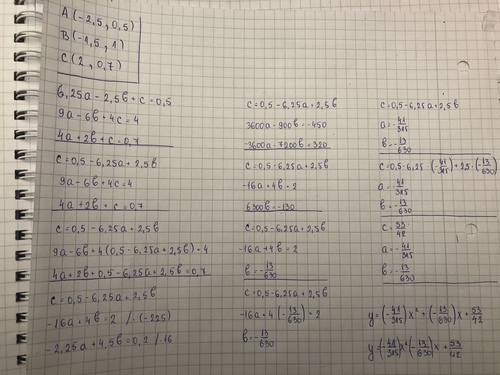 A(-2,5 ; 0,5)
B(-1,5 ; 1)
C(2 ; 0,7)
6,25a-2,5b+c=0,5
9a-6b+4c=4
4a+2b+c=0,7
c=0,5-6,25a+2,5b
9a-6b+4c=4
4a+2b+c=0,7
c=0,5-6,25a+2,5b
9a-6b+4(0,5-6,25a+2,5b)=4
4a+2b+0,5-6,25a+2,5b=0,7
c=0,5-6,25a+2,5b
-16a+4b=2 /·(-225)
-2,25a+4,5b=0,2 /·16
c=0,5-6,25a+2,5b
3600a-900b=-450
-3600a-7200b=320
c=0,5-6,25a+2,5b
-16a+4b=2
6300b=-130
c=0,5-6,25a+2,5b
-16a+4b=2
b=-13/630
c=0,5-6,25a+2,5b
-16a+4(-13/630)=2
b=-13/630
c=0,5-6,25a+2,5b
a=-41/315
b=-13/630
c=0,5-6,25·(-41/315)+2,5·(-13/630)
a=-41/315
b=-13/630
c=53/42
a=-41/315
b=-13/630
y=(-41/315)x²+(-13/630)x+53/42
y=(-41/315)x²+(-13/630)x+53/42